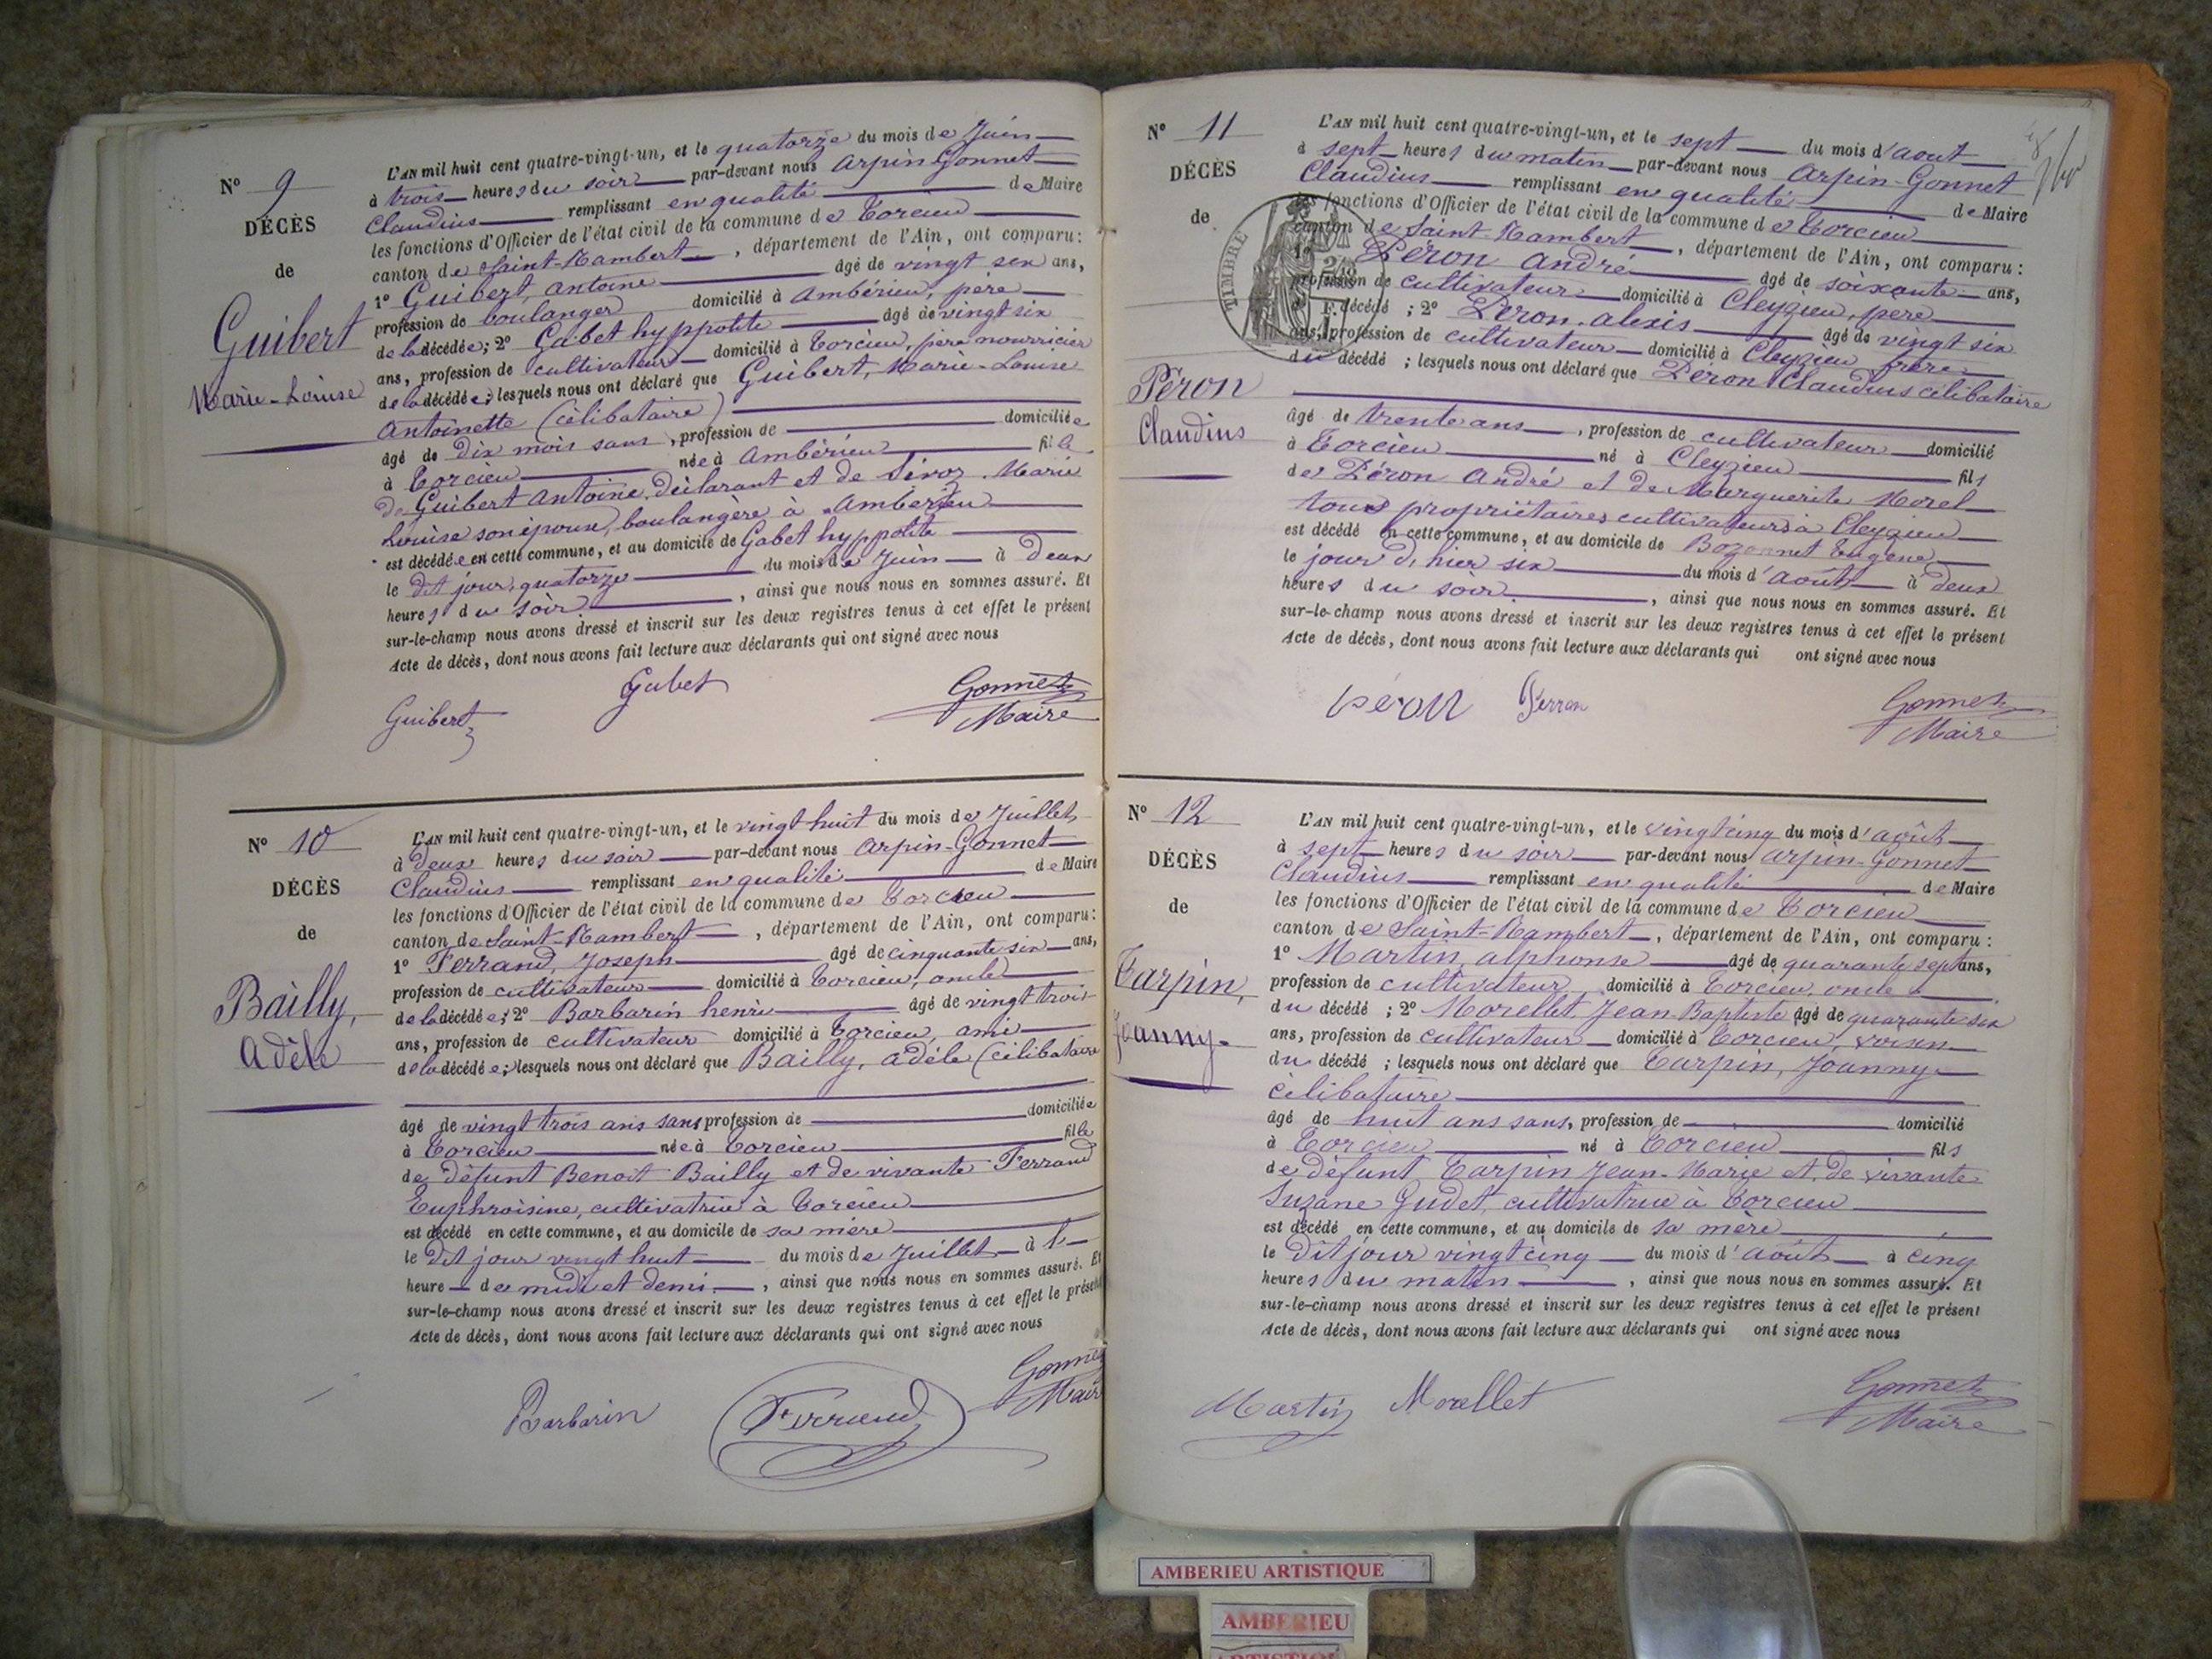 N° 9
DÉCÈS
de
Guibert
Marie-Louise
L'AN mil huit cent quatre-vingt-un, et le quatorze du mois de Juin
à trois heures du soir par-devant nous Arpin-Gonnet
Claudius remplissant en qualité de Maire
les fonctions d'Officier de l'état civil de la commune de Torcieu
canton de Saint-Rambert, département de l'Ain, ont comparu :
1° Guibert, Antoine âgé de vingt six ans,
profession de boulanger domicilié à Ambérieu, père
de la décédée; 2° Gabet hyppolite âgé de vingt six
ans, profession de cultivateur domicilié à Torcieu, père nourricier
de la décédée; lesquels nous ont déclaré que Guibert, Marie-Louise
Antoinette (célibataire)
âgé de dix mois sans, profession de domiciliée
à Torcieu née à Ambérieu fille
de Guibert Antoine, déclarant et de Marie
Louise son épouse, boulangère à Ambérieu
est décédée en cette commune, et au domicile de Gabet hyppolite
le dit jour, quatorze du mois de Juin à deux
heures du soir, ainsi que nous nous en sommes assuré. Et
sur-le-champ nous avons dressé et inscrit sur les deux registres tenus à cet effet le présent
Acte de décès, dont nous avons fait lecture aux déclarants qui ont signé avec nous
Guibert Gabet Gonnet
Maire
N° 10
DÉCÈS
de
Bailly,
Adèle
L'AN mil huit cent quatre-vingt-un, et le vingt huit du mois de Juillet
à deux heures du soir par-devant nous Arpin-Gonnet
Claudius remplissant en qualité de Maire
les fonctions d'Officier de l'état civil de la commune de Torcieu
canton de Saint-Rambert, département de l'Ain, ont comparu :
1° Ferrand, Joseph âgé de cinquante six ans,
profession de cultivateur domicilié à Torcieu, oncle
de la décédée; 2° Barbarin henri âgé de vingt trois
ans, profession de cultivateur domicilié à Torcieu, ami
de la décédée; lesquels nous ont déclaré que Bailly, Adèle (célibataire
âgé de vingt trois ans sans profession de domiciliée
à Torcieu née à Torcieu fille
de défunt Benoit Bailly et de vivante Ferrand
Euphroisine, cultivatrice à Torcieu
est décédé en cette commune, et au domicile de sa mère
le dit jour vingt huit du mois de Juillet à l'
heure de midi et demi, ainsi que nous nous en sommes assuré. Et
sur-le-champ nous avons dressé et inscrit sur les deux registres tenus à cet effet le présent
Acte de décès, dont nous avons fait lecture aux déclarants qui ont signé avec nous
Barbarin Ferrand Gonnet
Maire
N° 11
DÉCÈS
de
TIMBRE
Péron
Claudius
L'AN mil huit cent quatre-vingt-un, et le sept du mois d'août
à sept heures du matin par-devant nous Arpin-Gonnet
Claudius remplissant en qualité de Maire
les fonctions d'Officier de l'état civil de la commune de Torcieu
canton de Saint-Rambert, département de l'Ain, ont comparu :
1° Péron André âgé de soixante ans,
profession de cultivateur domicilié à Cleyzieu, père
décédé ; 2° Péron Alexis âgé de vingt six
ans, profession de cultivateur domicilié à Cleyzieu frère
du décédé ; lesquels nous ont déclaré que Péron Claudius célibataire
âgé de trente ans, profession de cultivateur domicilié
à Torcieu né à Cleyzieu fils
de Péron André et de Marguerite Morel
tous propriétaires cultivateurs à Cleyzieu
est décédé en cette commune, et au domicile de Bozonnet Eugène
le jour d'hier six du mois d'août à deux
heures du soir, ainsi que nous nous en sommes assuré. Et
sur-le-champ nous avons dressé et inscrit sur les deux registres tenus à cet effet le présent
Acte de décès, dont nous avons fait lecture aux déclarants qui ont signé avec nous
péron Perron Gonnet
Maire
N° 12
DÉCÈS
de
Tarpin,
Joanny
L'AN mil huit cent quatre-vingt-un, et le vingt cinq du mois d'août
à sept heures du soir par-devant nous Arpin-Gonnet
Claudius remplissant en qualité de Maire
les fonctions d'Officier de l'état civil de la commune de Torcieu
canton de Saint-Rambert, département de l'Ain, ont comparu :
1° Martin, alphonse âgé de quarante sept ans,
profession de cultivateur, domicilié à Torcieu, oncle
du décédé ; 2° Morellet, Jean-Baptiste âgé de quarante six
ans, profession de cultivateur domicilié à Torcieu, voisin
du décédé ; lesquels nous ont déclaré que Tarpin, Joanny
célibataire
âgé de huit ans sans, profession de domicilié
à Torcieu né à Torcieu fils
de défunt Tarpin Jean-Marie et de vivante
Suzane Gudet, cultivatrice à Torcieu
est décédé en cette commune, et au domicile de sa mère
le dit jour vingt cinq du mois d'août à cinq
heures du matin, ainsi que nous nous en sommes assuré. Et
sur-le-champ nous avons dressé et inscrit sur les deux registres tenus à cet effet le présent
Acte de décès, dont nous avons fait lecture aux déclarants qui ont signé avec nous
Martin Morellet Gonnet
Maire
AMBERIEU ARTISTIQUE
AMBERIEU
ARTISTIQUE